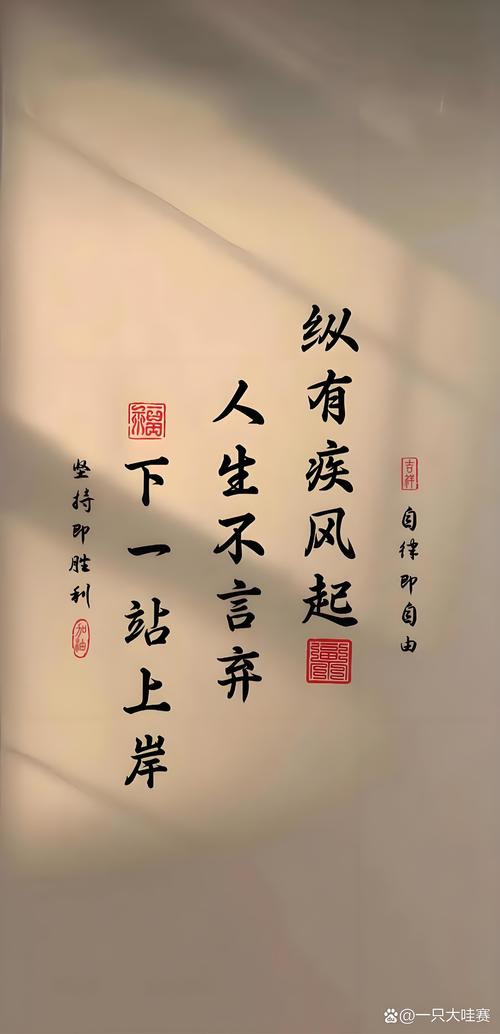 吉祥
自律即自由
纵有疾风起
人生不言弃
福
下一站上岸
坚持即胜利
加油
@一只大哇赛